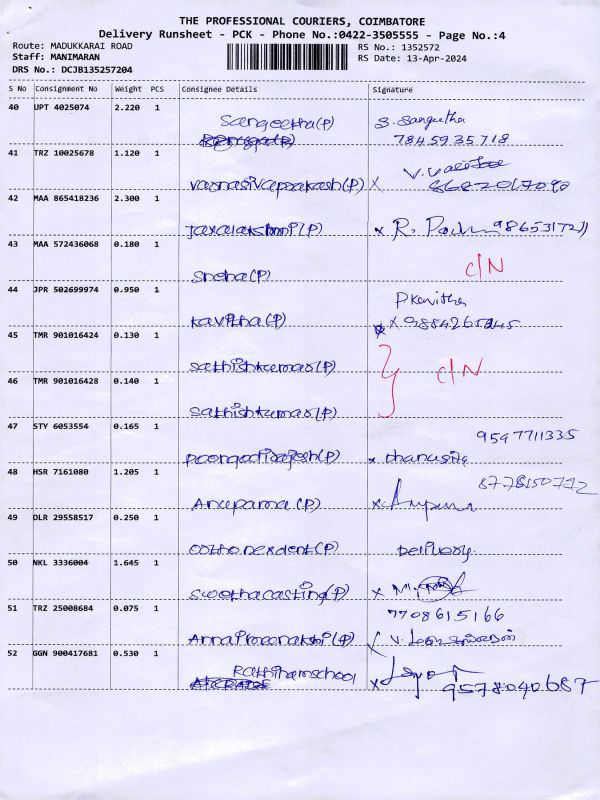 THE PROFESSIONAL COURIERS, COIMBATORE
Delivery Runsheet - PCK - Phone No.:0422-3505555 - Page No.:4
Route: MADUKKARAI ROAD RS No.: 1352572
Staff: MANIMARAN RS Date: 13-Apr-2024
DRS No.: DCJB135257204
S No Consignment No Weight PCS Consignee Details Signature
40 UPT 4025074 2.220 1
Sangeetha(P) S. Sangeetha
7845935718
41 TRZ 10025678 1.120 1
(P) X
42 MAA 865418236 2.300 1
(P) x R.
43 MAA 572436068 0.180 1
Sneha(P) C/N
44 JPR 502699974 0.950 1
P Kavitha
Kavitha(P) x
45 TMR 901016424 0.130 1
Sathishkumar(P)
C/N
46 TMR 901016428 0.140 1
Sathishkumar(P)
47 STY 6053554 0.165 1
9597711335
(P) x
48 HSR 7161080 1.205 1
Anupama (P) x
49 DLR 29558517 0.250 1
(P) Delivery
50 NKL 3336004 1.645 1
Swethacasting(P) x
51 TRZ 25008684 0.075 1
7708615166
(P) V.
52 GGN 900417681 0.530 1
Rathinamschool x
9578040687